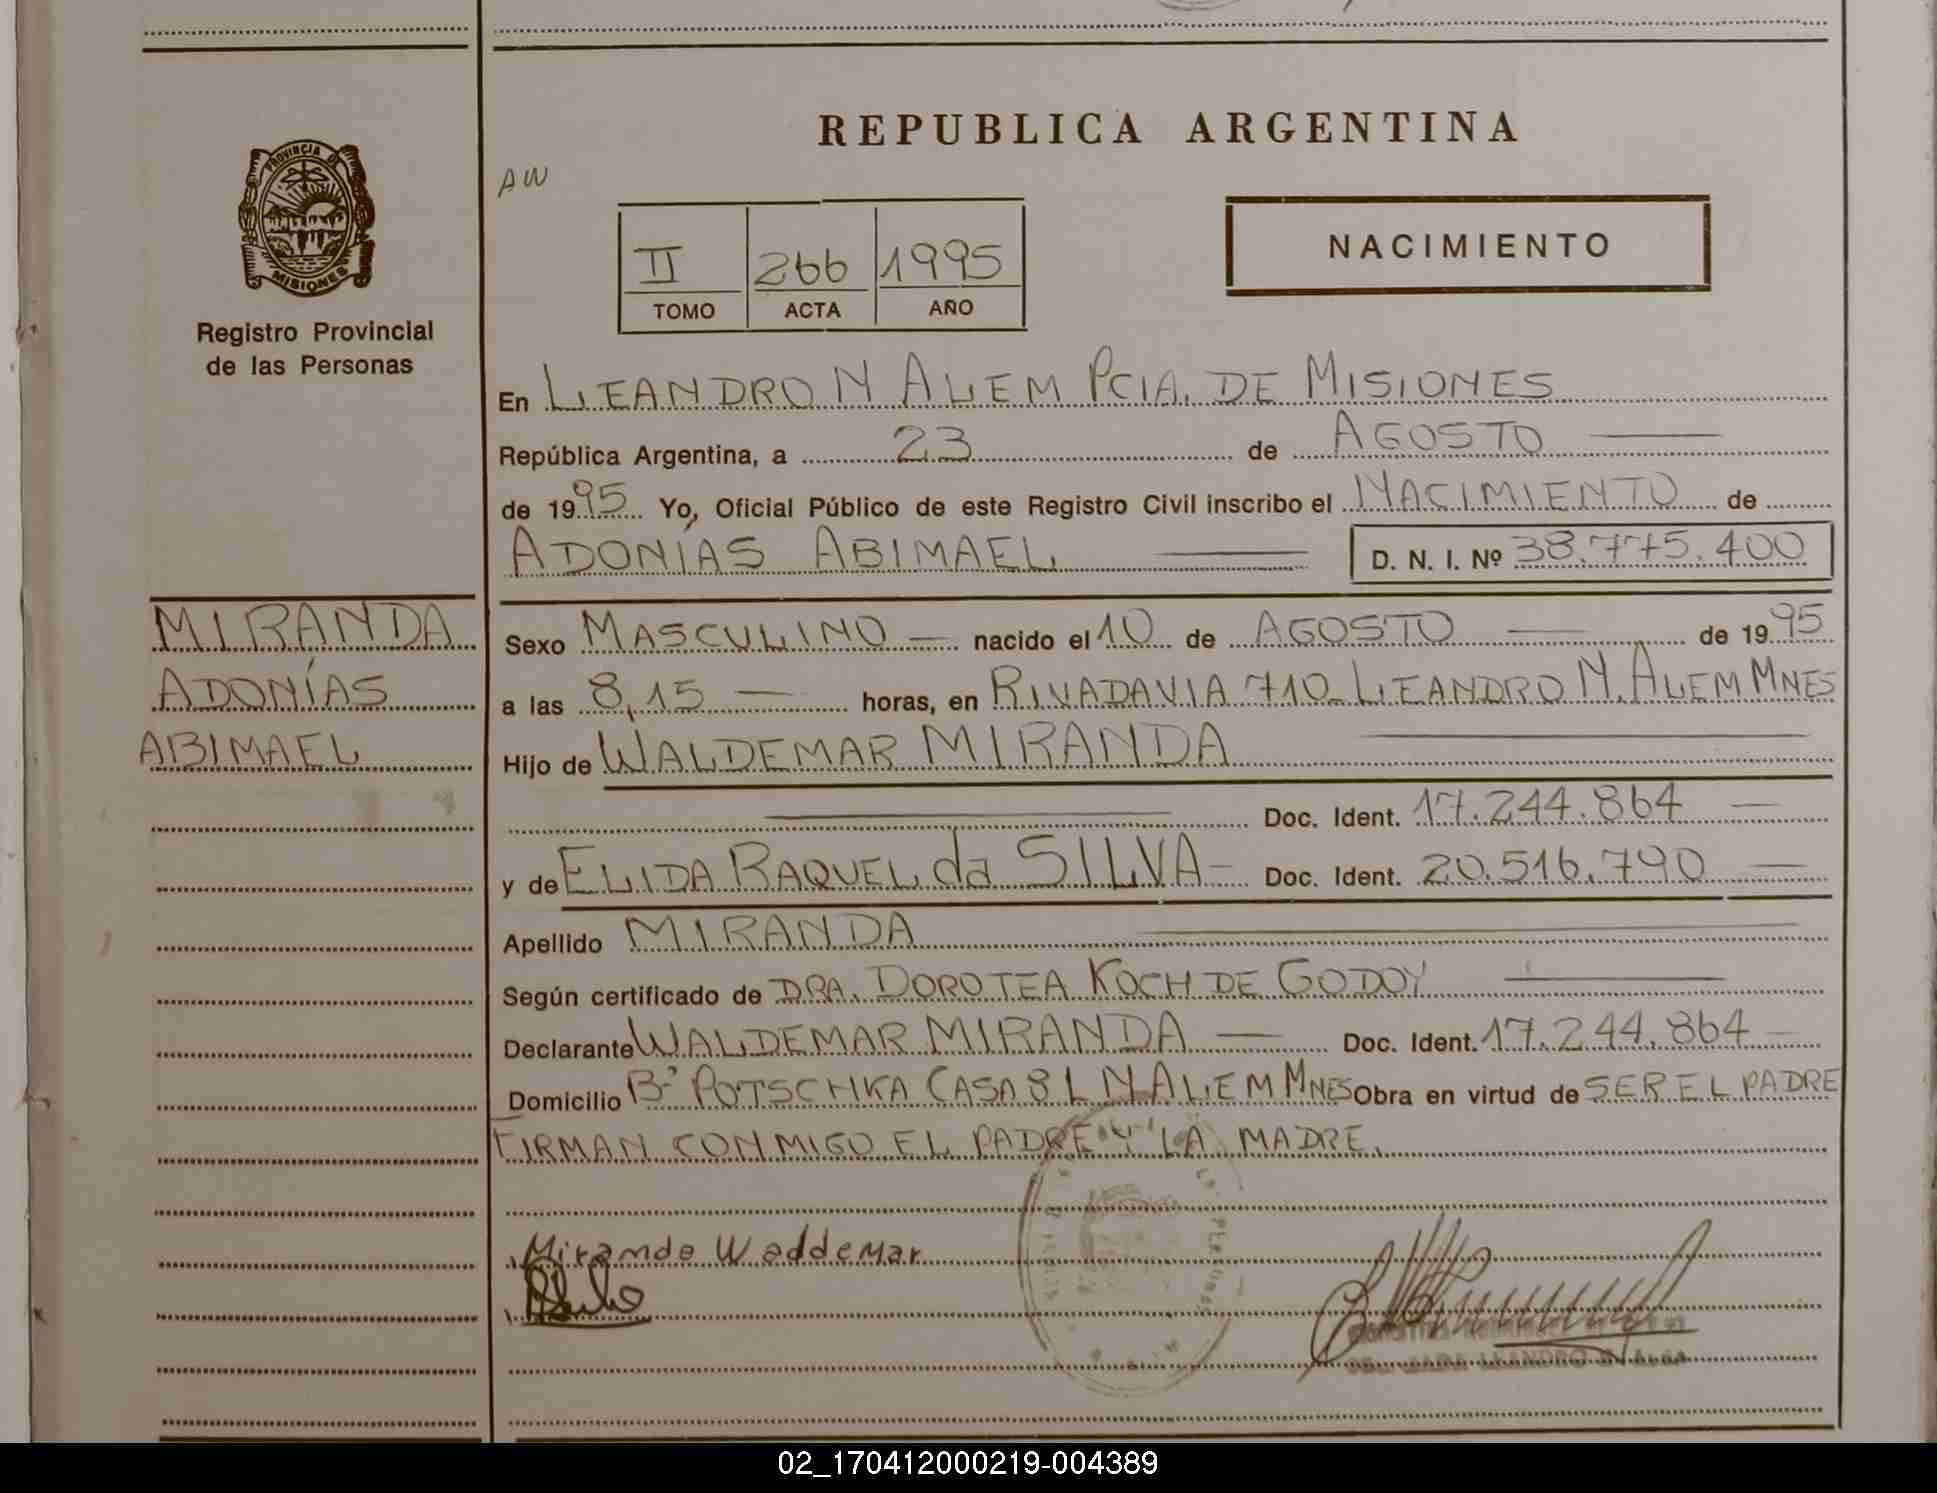 REPUBLICA ARGENTINA
PROVINCIA DE
MISIONES
Registro Provincial
de las Personas
AW
II 266 1995
TOMO ACTA AÑO
NACIMIENTO
En LEANDRO N ALEM PCIA. DE MISIONES
República Argentina, a 23 de AGOSTO
de 1995 Yo, Oficial Público de este Registro Civil inscribo el NACIMIENTO de
ADONÍAS ABIMAEL D. N. I. Nº 38.775.400
MIRANDA
ADONÍAS
ABIMAEL
Sexo MASCULINO nacido el 10 de AGOSTO de 1995
a las 8,15 horas, en RIVADAVIA 710 LEANDRO N. ALEM MNES
Hijo de WALDEMAR MIRANDA
Doc. Ident. 17.244.864
y de ELIDA RAQUEL da SILVA Doc. Ident. 20.516.790
Apellido MIRANDA
Según certificado de DRA. DOROTEA KOCH DE GODOY
Declarante WALDEMAR MIRANDA Doc. Ident. 17.244.864
Domicilio Bº POTSCHKA CASA 8 L N ALEM MNES Obra en virtud de SER EL PADRE
FIRMAN CONMIGO EL PADRE Y LA MADRE.
Miranda Waddemar
02_170412000219-004389